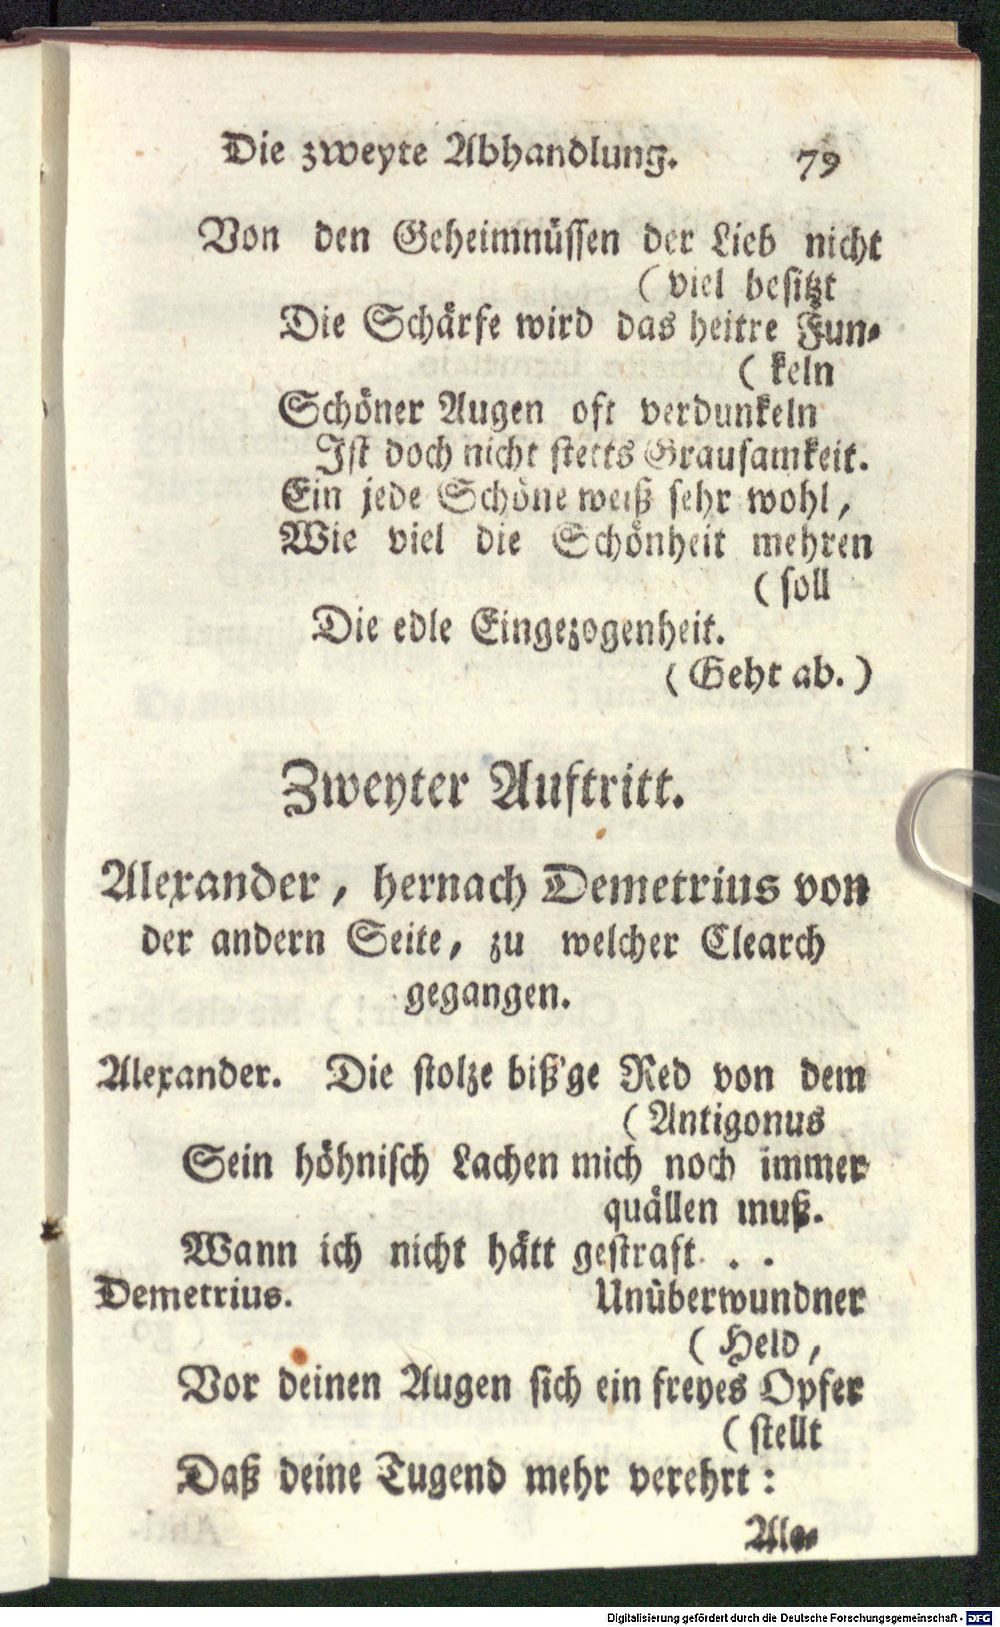 Die zweyte Abhandlung. 79
Von den Geheimnüssen der Lieb nicht
(viel besitzt
Die Schärfe wird das heitre Fun-
(keln
Schöner Augen oft verdunkeln
Ist doch nicht stetts Grausamkeit.
Ein jede Schöne weiß sehr wohl,
Wie viel die Schönheit mehren
(soll
Die edle Eingezogenheit.
(Geht ab.)
Zweyter Auftritt.
Alexander, hernach Demetrius von
der andern Seite, zu welcher Clearch
gegangen.
Alexander. Die stolze biß'ge Red von dem
(Antigonus
Sein höhnisch Lachen mich noch immer
quällen muß.
Wann ich nicht hätt gestraft. . .
Demetrius. Unüberwundner
(Held,
Vor deinen Augen sich ein freyes Opfer
(stellt
Daß deine Tugend mehr verehrt:
Ale-
Digitalisierung gefördert durch die Deutsche Forschungsgemeinschaft - DFG